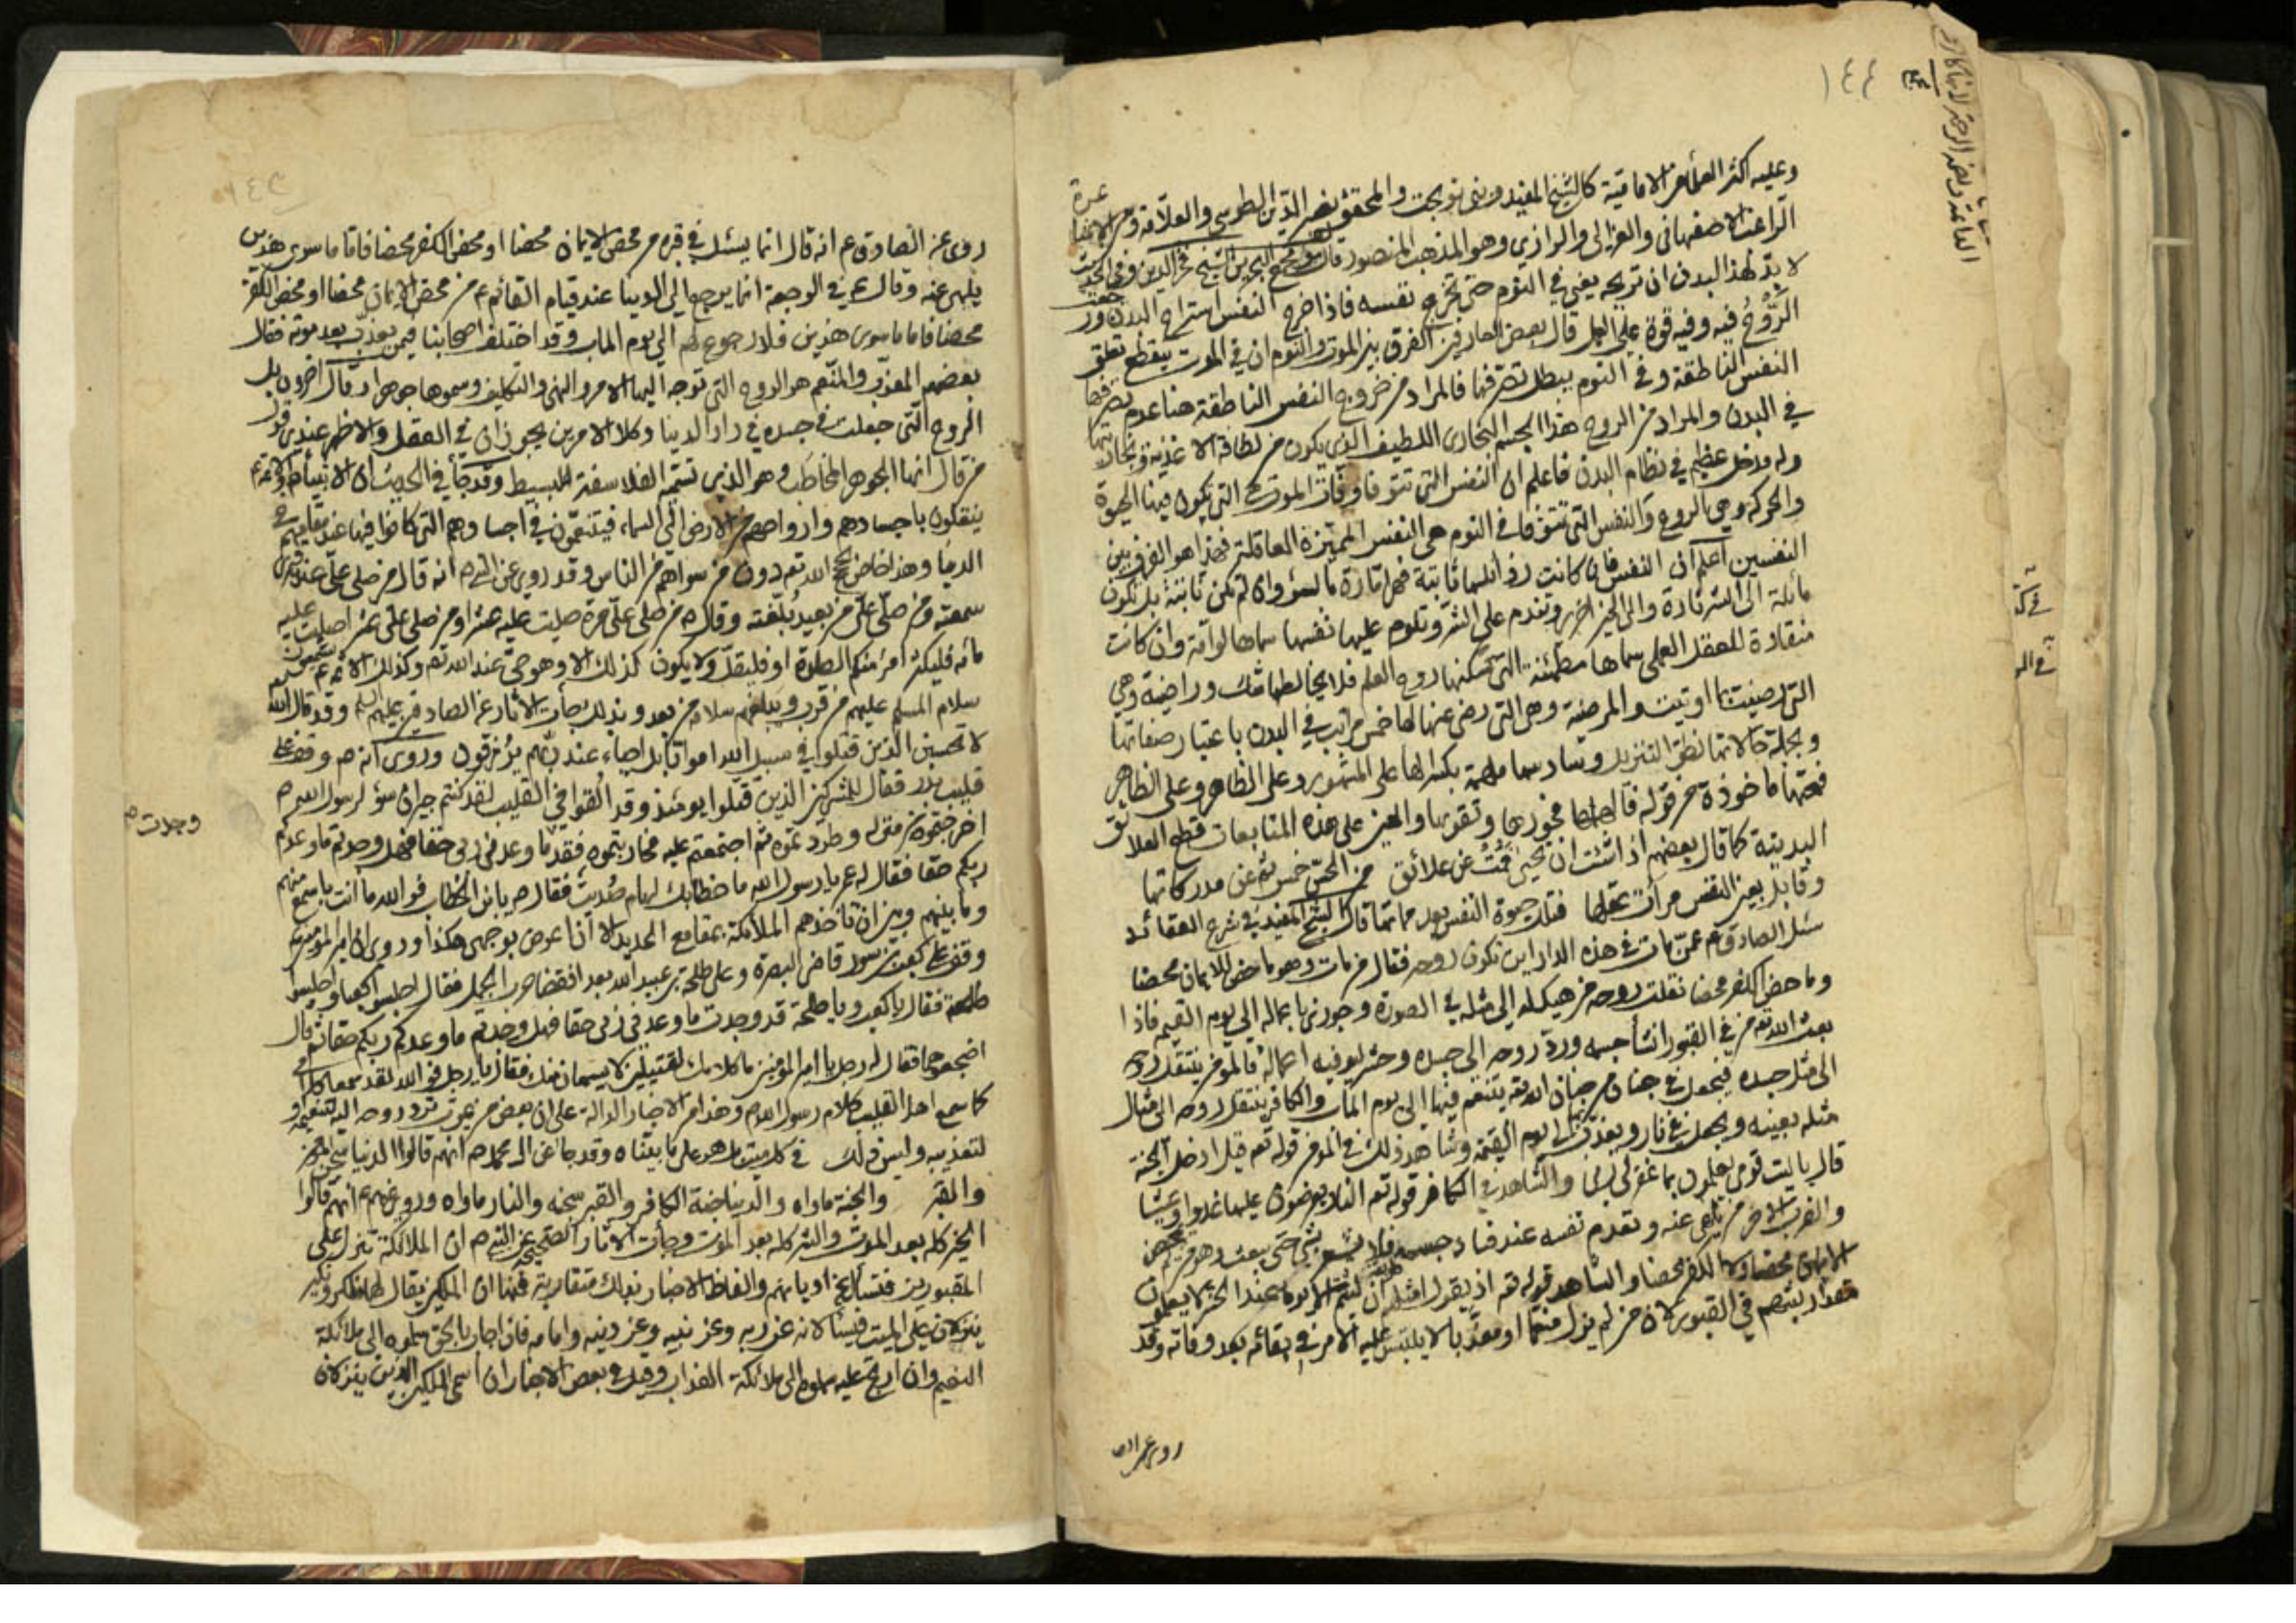 ١٤٤
وعليه اكثر العلماء من الامامية كالشيخ المفيد وبني نوبخت والمحقق نصير الدين الطوسي والعلامة ومن الاشاعرة
الراغب الاصفهاني والغزالي والرازي وهو المذهب المنصور قال في مجمع البحرين الشيخ فخر الدين وفي الحديث
لا بد لهذا البدن ان تريحه يعني في النوم حتى تخرج نفسه فاذا خرج النفس استراح البدن ورجعت
الرُّوحُ فيه وفيه قوة على العمل قال بعض العارفين الفرق بين الموت والنوم ان في الموت ينقطع تعلق
النفس الناطقة وفي النوم يبطل تصرفها فالمراد من خروج النفس الناطقة هنا عدم تصرفها
في البدن والمراد من الروح هذا الجسم البخاري اللطيف الذي يكون من لطافة الاغذية وبخاريتها
وله مدخل عظيم في نظام البدن فاعلم ان النفس التي تتوفا وفات الموت هي التي تكون فيها الحيوة
والحركة وهي الروح والنفس التي تتوفا في النوم هي النفس المميزة العاقلة فهذا هو الفرق بين
النفسين اعلم ان النفس فان كانت ثابتة فهي امارة بالسوء وان لم تكن ثابتة بل تكون
مائلة الى الشر تارة والى الخير اخرى وتندم على الشر وتلوم عليها نفسها سماها لوامة وان كانت
منقادة للعقل العملي سماها مطمئنة التي يسكنها روح العلم فلا يخالطها شك وراضية وهي
التي رضيت بما اوتيت والمرضية وهي التي رضي عنها لها خمس مراتب في البدن باعتبار صفاتها
وجملة حالاتها نظر التنزيل وسادسها ملهمة بكسر الهاء على المشهور وعلى الظاهر وعلى الظاهر
فتحتها ماخوذة من قوله فالهمها فجورها وتقويها والعين على هذه المتابعات قطع العلائق
البدنية كما قال بعضهم اذا شئت ان تحيى فمت عن علائق من الحس خمس ثم عن مدركاتها
وقابل بعين النفس مرات عقلها فتلك حيوة النفس بعد مماتها قال الشيخ المفيد في شرح العقائد
سئل الصادق ع عمن مات في هذه الدار اين تكون روحه فقال من مات وهو ماحض للايمان محضا
وماحض الكفر محضا نقلت روحه من هيكله الى مثله في الصورة وجوزي باعماله الى يوم القيمة فاذا
بعث الله تع من في القبور انشأ جسمه ورد روحه الى جسده وحشر ليوفيه اعماله فالمؤمن ينتقل روحه
الى مثل جسده فيجعل في جنان من جنان الله تع يتنعم فيها الى يوم المآب والكافر ينتقل روحه الى مثال
مثله بعينه ويجعل في نار ويعذب بها الى يوم القيمة وشاهد ذلك في المؤمن قوله تع قيل ادخل الجنة
قال يا ليت قومي يعلمون بما غفر لي ربي والشاهد في الكافر قوله تع النار يعرضون عليها غدوا وعشيا
والضرب الاخر من يلهى عنه وتعدم نفسه عند فساد جسمه فلا يشعر بشئ حتى يبعث وهو من لم يمحض
الايمان محضا ولا الكفر محضا والشاهد قوله تع اذ يقول امثلهم طريقة ان لبثتم الا يوما عند الحشر لا يعلمون
مقدار لبثهم في القبور لان من لم يزل منعما او معذبا لا يلتبس عليه الامر في بقائه بعد وفاته وقد
روى عن الص
١٤٣
روى عن الصادق ع انه قال انما يسئل في قبره من محض الايمان محضا او محض الكفر محضا فاما ما سوى هذين
يلهى عنه وقال ع في الرجعة انما يرجع الى الدنيا عند قيام القائم ع من محض الايمان محضا او محض الكفر
محضا فاما ما سوى هذين فلا رجوع لهم الى يوم المآب وقد اختلف اصحابنا فيمن يعذب بعد موته فقال
بعضهم المعذب والمنعم هو الروح التي توجه اليها الامر والنهي والتكليف وسموها جوهرا وقال آخرون بل
الروح التي جعلت في جسده في دار الدنيا وكلا الامرين يجوزان في العقل والاظهر عندي قول
من قال انها الجوهر المخاطب وهو الذي تسميه الفلاسفة البسيط وقد جاء في الحديث ان الانبياء والائمة ع
ينقلون باجسادهم وارواحهم من الارض الى السماء فيتنعمون في اجسادهم التي كانوا فيها عند مقامهم في
الدنيا وهذا خاص بحجج الله تع دون من سواهم من الناس وقد روي عن النبي ص انه قال من صلى علي عند قبري
سمعته ومن صلى علي من بعيد بلغته وقال ص من صلى علي مرة صليت عليه عشرا ومن صلى علي عشرا صليت عليه
مائة فليكثر امرء منكم الصلوة او فليقل ولا يكون كذلك الا وهو حي عند الله تع وكذلك الائمة ع يسمعون
سلام المسلم عليهم من قرب ويبلغهم سلامه من بعد وبذلك جأت الآثار عن الصادقين عليهم السلم وقد قال الله
لا تحسبن الذين قتلوا في سبيل الله امواتا بل احياء عند ربهم يرزقون وروى انه ص وقف على
قليب بدر فقال للمشركين الذين قتلوا يومئذ وقد القوا في القليب لقد كنتم جيران سوء لرسول الله ص
اخرجتموه من منزله وطردتموه ثم اجتمعتم عليه فحاربتموه فقد ما وعدني ربي حقا فهل وجدتم ما وعدكم
وجدت ص
ربكم حقا فقال له عمر يا رسول الله ما خطابك لهام صُديت فقال ص يا بن الخطاب فوالله ما انت باسمع منهم
وما بينهم وبين ان تاخذهم الملائكة بمقامع الحديد الا ان اعرض بوجهي هكذا وروي ان امير المؤمنين ع
وقف على كعب بن سور قاضي البصرة وعلى طلحة بن عبيد الله بعد انقضا حرب الجمل فقال اجلسوا كعبا واجلسوا
طلحة فقال يا كعب ويا طلحة قد وجدت ما وعدني ربي حقا فهل وجدتم ما وعدكم ربكم حقا ثم قال
اضجعوهما فقال له رجل يا امير المؤمنين ما كلامك لقتيلين لا يسمعان منك فقال يا رجل فوالله لقد سمعا كلامي
كما سمع اهل القليب كلام رسول الله ص وهذا من الاخبار الدالة على ان بعض من يموت ترد روحه اليه لتنعيمه و
لتعذيبه وليس ذلك في كل ميت بل هو على ما بيناه وقد جا عن ال محمد ص انهم قالوا الدنيا سجن المؤمن
والقبر والجنة ماواه والدنيا جنة الكافر والقبر سجنه والنار ماواه وروي عنهم ع انهم قالوا
الخير كله بعد الموت والشر كله بعد الموت وجأت الآثار الصحيحة عن النبي ص ان الملائكة تنزل على
المقبورين فتسالهم عن اديانهم والفاظ الاخبار بذلك متقاربة فمنها ان الملكين يقال لهما منكر ونكير
ينزلان على الميت فيسئلانه عن ربه وعن نبيه وعن دينه وامامه فان اجاب بالحق سلموه الى ملائكة
النعيم وان ارتج عليه سلموه الى ملائكة العذاب وقيل في بعض الاخبار ان اسمي الملكين الذين ينزلان